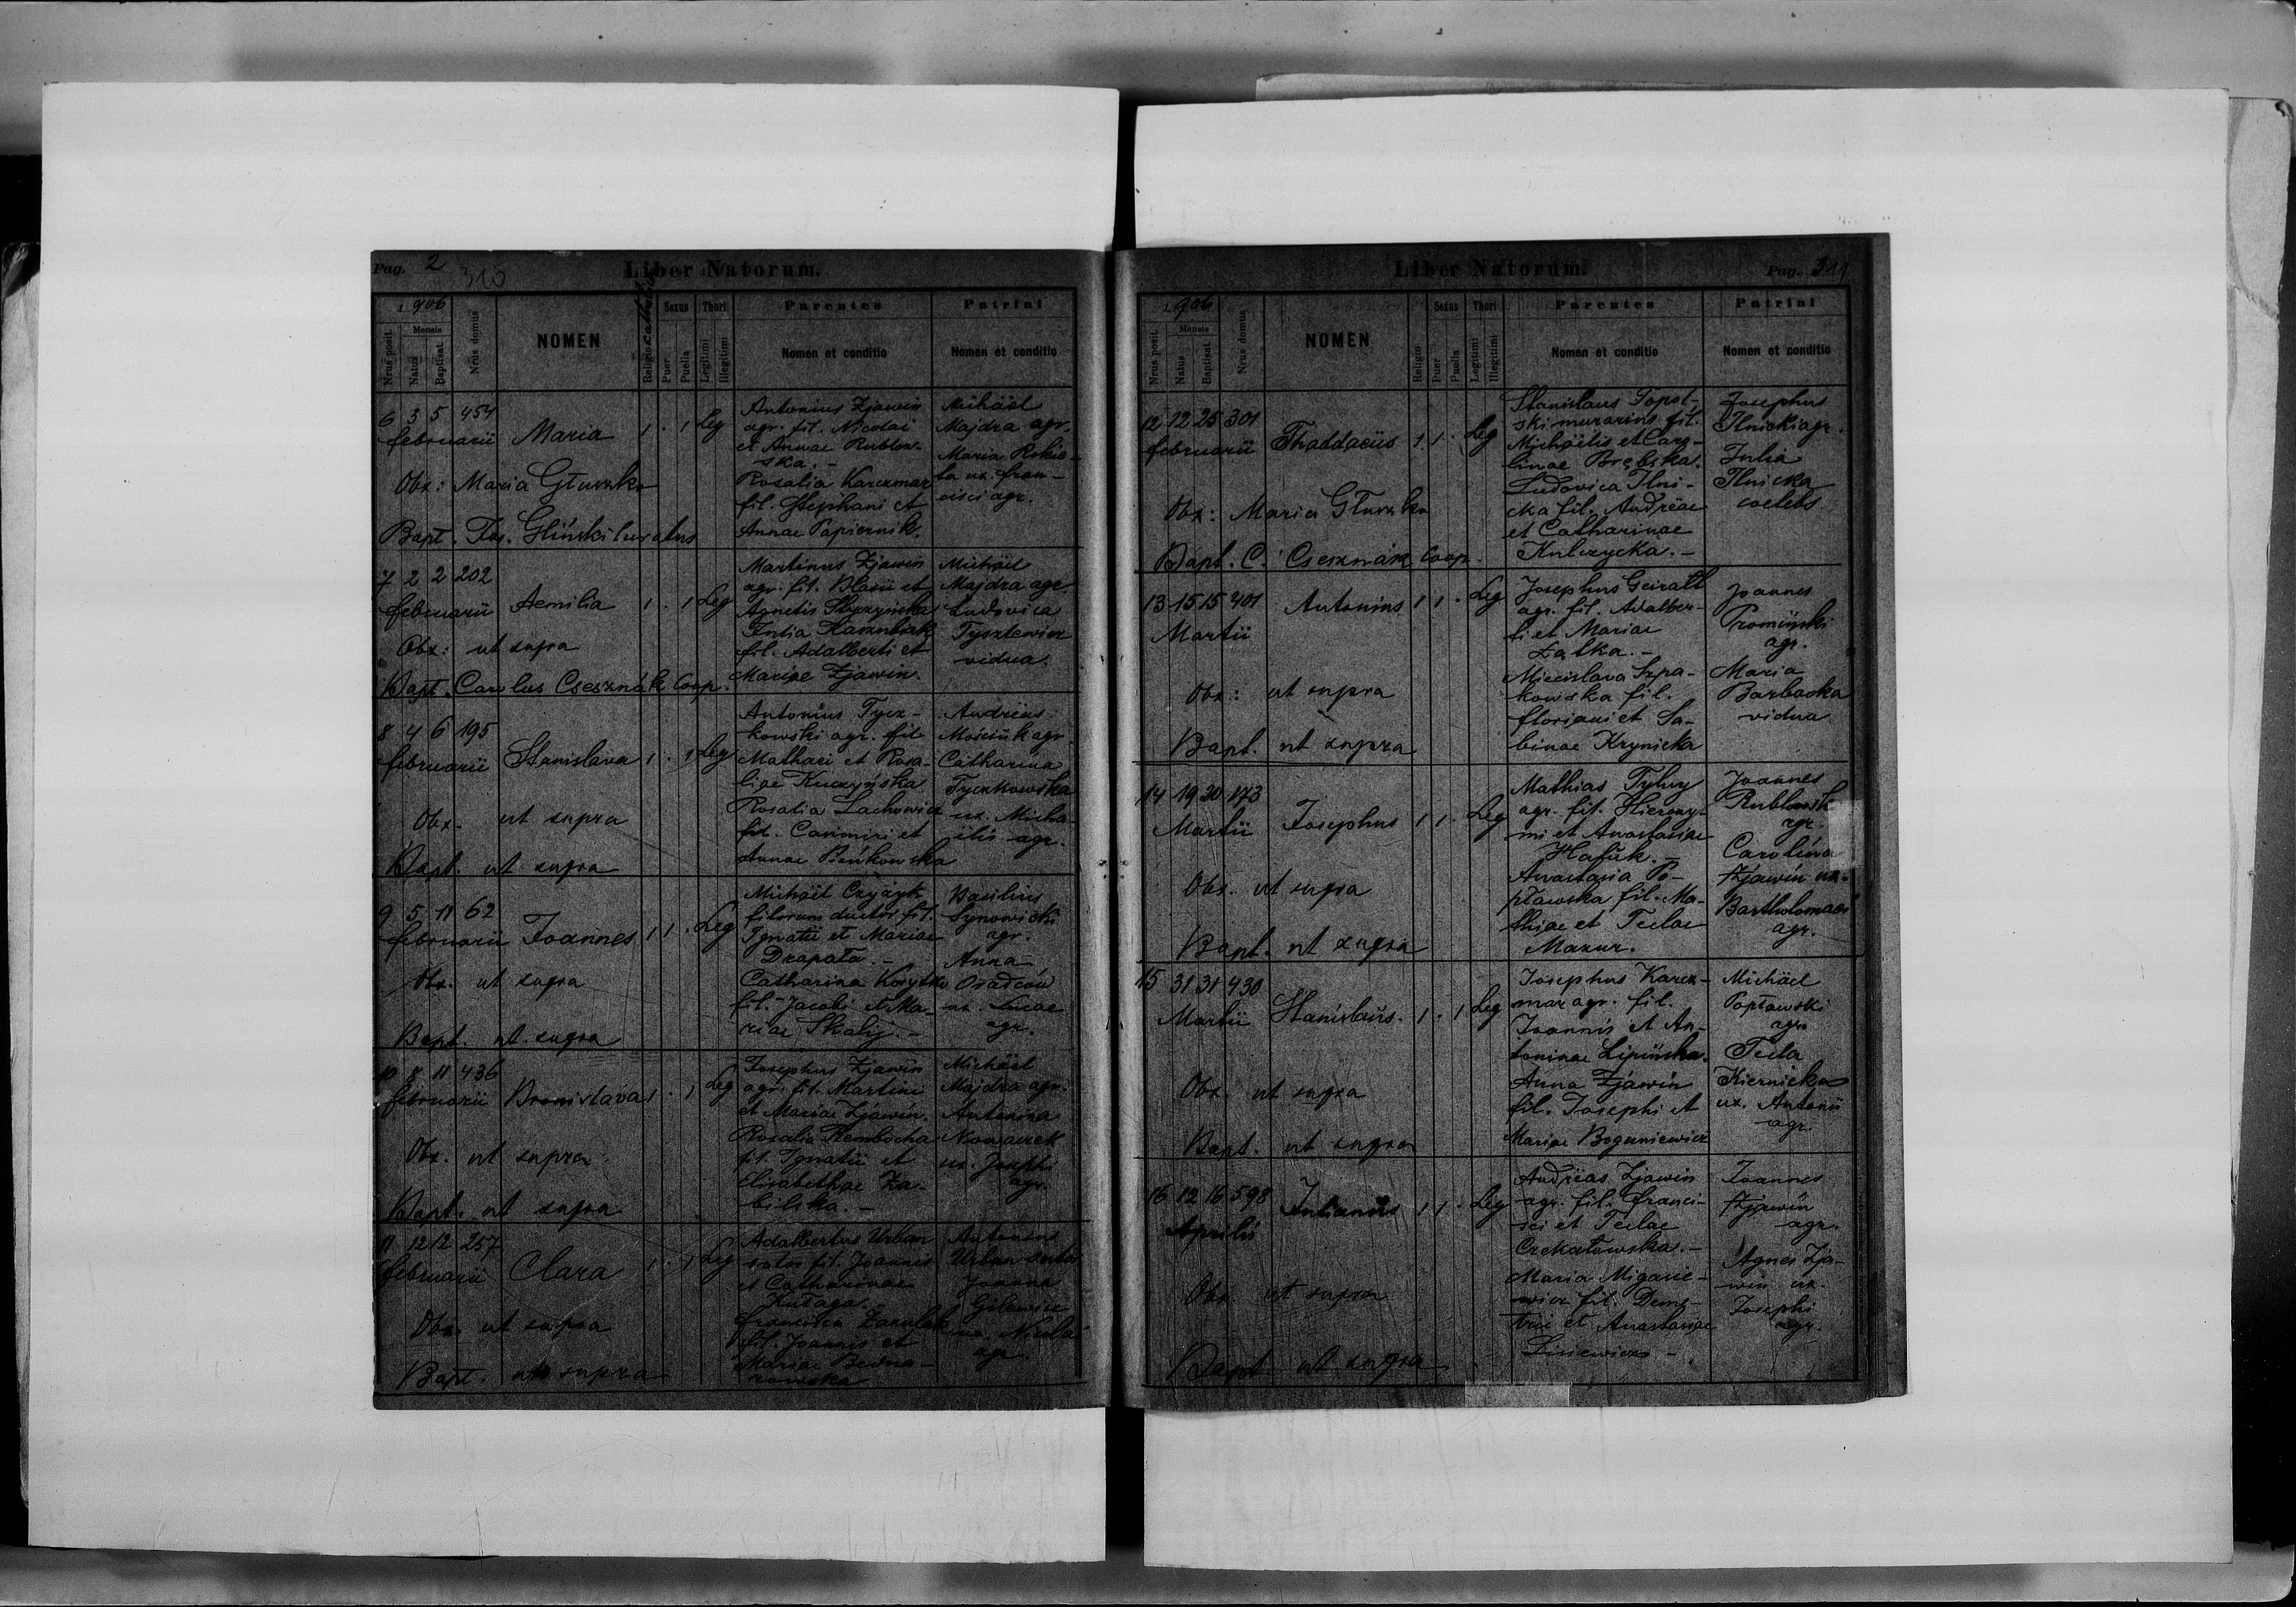 Pag. 2 310
Liber Natorum.
1906
Nrus posit.
Mensis
Natus
Baptisat.
Nrus domus
NOMEN
Religio catholica
Sexus
Puer
Puella
Thori
Legitimi
Illegitimi
Parentes
Nomen et conditio
Patrini
Nomen et conditio
6 3 5 454
februarii Maria 1 . 1 Leg
Obx: Maria Głuszko
Bapt. Jos. Gliński curatus
Antonius Zjawin
agr. fil. Nicolai
et Annae Rublow-
ska. -
Rosalia Karczmar
fil. Stephani et
Annae Papiernik.
Michäel
Majdra agr.
Maria
ux. fran-
cisci agr.
7 2 2 202
februarii Aemilia 1 . 1 Leg
Obx: ut supra
Bapt. Carolus Csesznák Coop.
Martinus Zjawin
agr. fil. Blasii et
Agnetis
Julia
fil. Adalberti et
Mariae Zjawin.
Michäel
Majdra agr.
Ludovica
Tysztewicz
vidua.
8 4 6 195
februarii Stanislava 1 . 1 Leg
Obx. ut supra
Bapt. ut supra
Antonius Tycz-
kowski agr. fil
Mathaei et Rosa-
liae Kuczyńska
Rosalia Lachowicz
fil. Casimiri et
Annae Bieńkowska
Andreas
agr.
Catharina
Tyczkowska
ux. Micha-
elis agr.
9 5 11 62
februarii Joannes 1 1 . Leg
Obx. ut supra
Bapt. ut supra
Michäel Czyżyk
filorum ductor fil.
Ignatii et Mariae
Drapała. -
Catharina Korytko
fil. Jacobi et Ma-
riae Skalij. -
Basilius
Synowicki
agr.
Anna
Osadców
ux. Lucae
agr.
10 8 11 436
februarii Bronislava 1 . 1 Leg
Obx. ut supra
Bapt. ut supra
Josephus Zjawin
agr. fil. Martini
et Mariae Zjawin.
Rosalia Rembocha
fil. Ignatii et
Elisabethae Za-
bilska. -
Michäel
Majdra agr.
Antonina
Nowaczek
ux. Josephi
agr.
11 12 12 257
februarii Clara 1 . 1 Leg
Obx. ut supra
Bapt. ut supra
Adalbertus Urban
sator fil. Joannis
et Catharinae
Kułaga.
francisca
fil. Joannis et
Mariae Bedna-
rowska
Antonius
Urban sutor
Joanna
Gilewicz
ux. Nicolai
agr.
Liber Natorum.
Pag. 311
1906
Nrus posit.
Mensis
Natus
Baptisat.
Nrus domus
NOMEN
Religio
Sexus
Puer
Puella
Thori
Legitimi
Illegitimi
Parentes
Nomen et conditio
Patrini
Nomen et conditio
12 12 25 301
februarii Thaddaeus 1 1 . Leg
Obx: Maria Głuszko
Bapt. C. Csesznák Coop.
Stanislaus Topol-
ski murarius fil.
Michäelis et Caro-
linae Brębska.
Ludovica Ilni-
cka fil. Andreae
et Catharinae
Kulczycka. -
Josephus
Ilnicki agr.
Julia
Ilnicka
coelebs.
13 15 15 401
Martii
Antonius 1 1 . Leg
Obx: ut supra
Bapt. ut supra
Josephus Geiratt
agr. fil. Adalber-
ti et Mariae
Załka. -
Miecislava Szpa-
kowska fil.
floriani et Sa-
binae Krynicka
Joannes
Promiński
agr.
Maria
Barbacka
vidua
14 19 20 173
Martii Josephus 1 1 . Leg
Obx. ut supra
Bapt. ut supra
Mathias Tylvy
agr. fil. Hierony-
mi et Anastasiae
Hafuk. -
Anastasia Po-
pławska fil. Ma-
thiae et Teclae
Mazur.
Joannes
Rublowsk
agr.
Carolina
Zjawin ux.
Bartholomaei
agr.
15 31 31 430
Martii Stanislaus. 1 . 1 Leg
Obx. ut supra
Bapt. ut supra
Josephus Karcz-
mar agr. fil.
Joannis et An-
toninae Lipińska.
Anna Zjawin
fil. Josephi et
Mariae Boguniewicz
Michäel
Popławski
agr.
Tecla
Kiernicka
ux. Antonii
agr.
16 12 16 598
Aprilis
Julianus 1 1 . Leg
Obx. ut supra
Bapt. ut supra
Andreas Zjawin
agr. fil. franci-
sci et Teclae
Czekałowska. -
Maria Migasie-
wicz fil. Deme-
trii et Anastasiae
Lisiewicz -
Joannes
Zjawin
agr.
Agnes Zja-
win ux.
Josephi
agr.